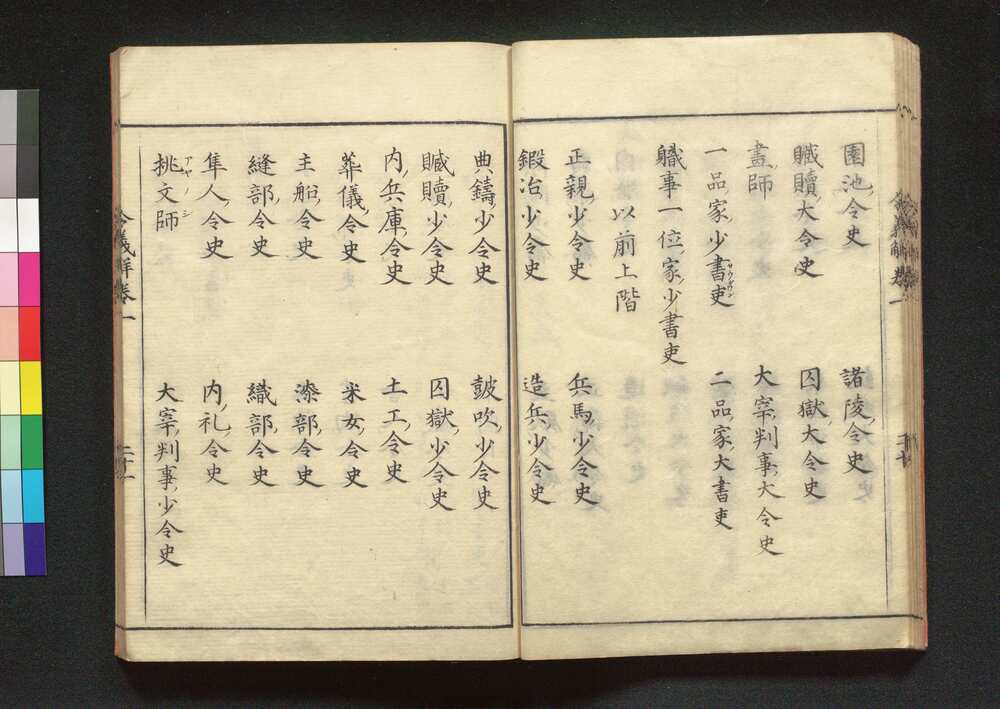 園池令史　諸陵令史
贓贖大令史　囚獄大令史
畫師　大宰判事大令史
一品家少書吏　二品家大書吏
職事一位家少書吏
以前上階
正親少令史　兵馬少令史
鍛冶少令史　造兵少令史
典鑄少令史　鼓吹少令史
贓贖少令史　囚獄少令史
内兵庫令史　土工令史
葬儀令史　采女令史
主船令史　漆部令史
縫部令史　織部令史
隼人令史　内礼令史
挑文師　大宰判事少令史
令義解卷一